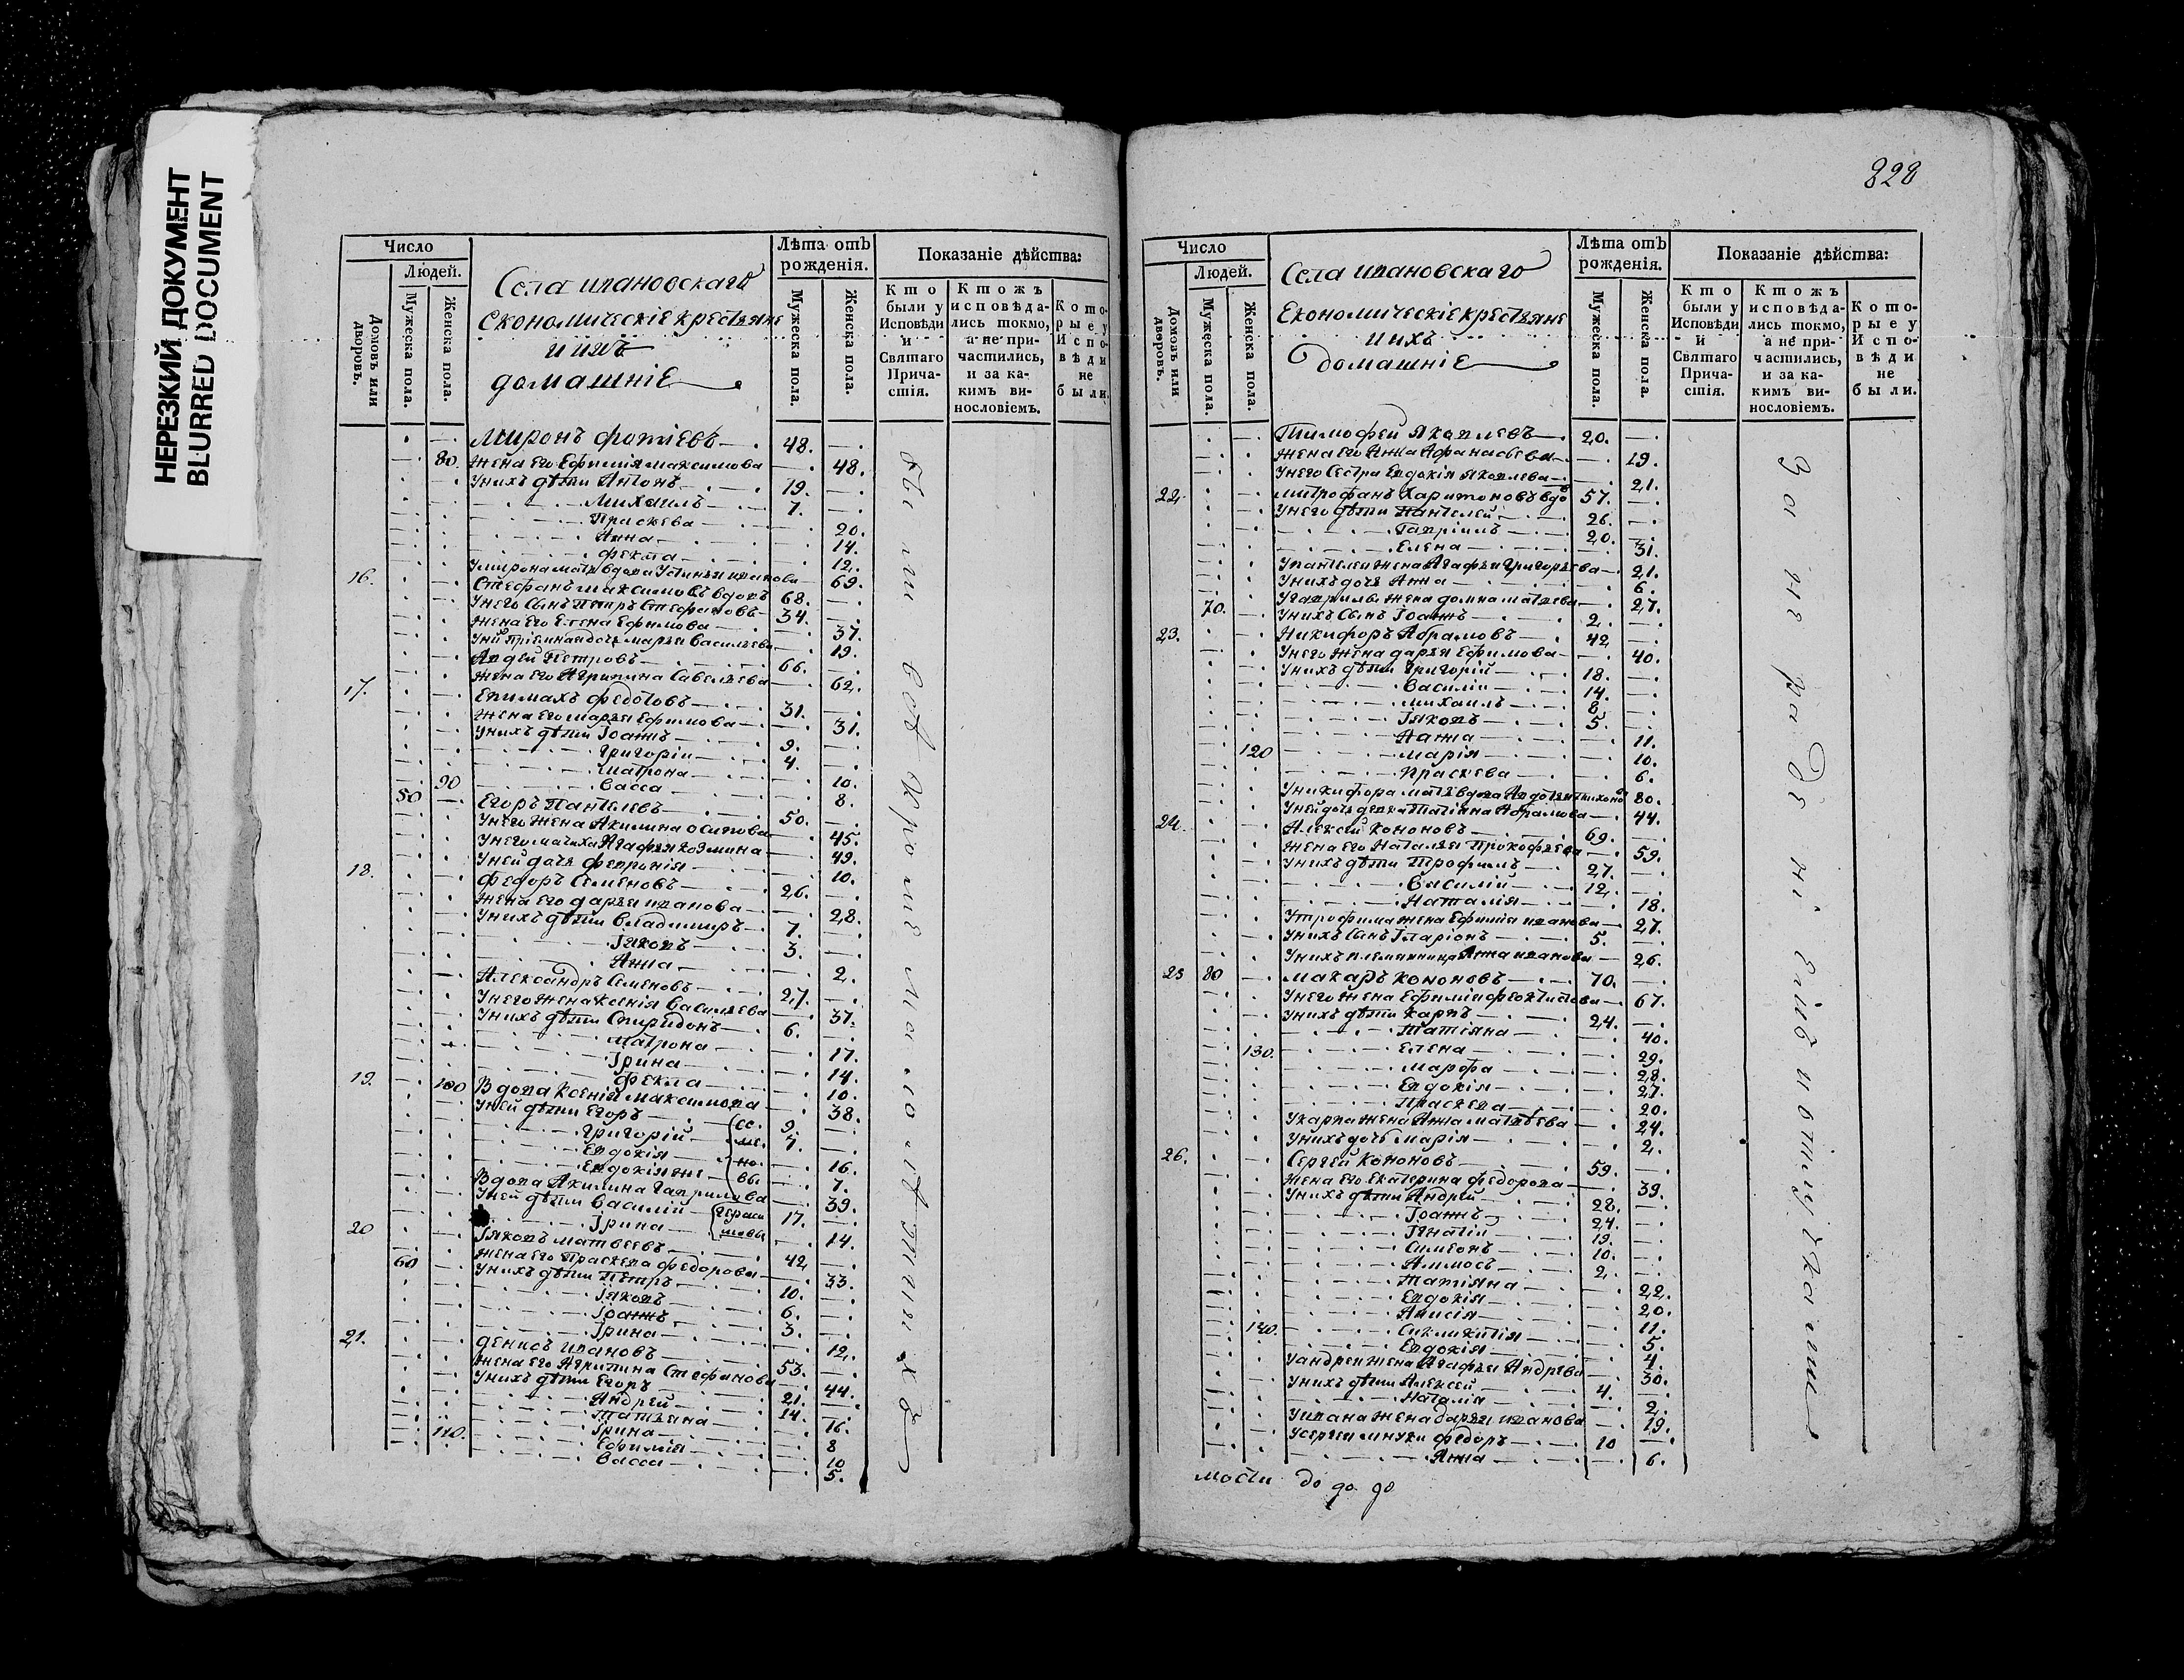 НЕРЕЗКИЙ ДОКУМЕНТ
BLURRED DOCUMENT
828
Число
Людей.
Домовъ или дворовъ.
Мужеска пола.
Женска пола.
Села ивановскаго
Економическіе крестьяне
и ихъ
домашніе
Лѣта отъ рожденія.
Мужеска пола.
Женска пола.
Показаніе дѣйства:
Кто были у Исповѣди и Святаго Причастія.
Ктожъ исповѣдались токмо, а не причастились, и за какимъ винословіемъ.
Которые у Исповѣди не были.
Миронъ фотіевъ 48.
80. жена его Ефимія максимова 48.
У нихъ дѣти Антонъ 19.
Михаилъ 7.
Праскева 20.
Анна 14.
фекла 12.
У мирона мать вдова Устинья иванова 69.
16. Стефанъ максимовъ вдовъ 68.
У него сынъ Петръ Стефановъ 34.
жена его Елена Ефимова 37.
У ней пріемная дочь марья Васильева 19.
Авдей Петровъ 66.
жена его Агрипина Савельева 62.
17. Епимахъ федотовъ 31.
жена его марья Ефимова 31.
У нихъ дѣти Іоаннъ 9.
Григорій 4.
матрона 10.
90 Васса 8.
50 Егоръ Пантелевъ 50.
У него жена Акилина осипова 45.
У него мачиха Агафья козмина 49.
У ней дочь февронія 10.
18. федоръ Семеновъ 26.
жена его дарья иванова 28.
У нихъ дѣти Владимиръ 7.
Іяковъ 3.
Анна 2.
Александръ Семеновъ 27.
У него жена Ксенія Васильева 37.
У нихъ дѣти Спиридонъ 6.
матрона 17.
Ірина 14.
фекла 10.
19. 100 Вдова Ксенія максимова 38.
У ней дѣти Егоръ 9.
Григорій 7.
Евдокія 16.
Евдокія же 7.
Вдова Акилина Гаврилова 39.
У ней дѣти Василій 17.
Ірина 14.
20 Іяковъ матвеевъ 42
60 жена его Праскева федорова 33.
У нихъ дѣти Петръ 10.
Іяковъ 6.
Іоаннъ 3.
Ірина 12.
21. денисъ ивановъ 53.
жена его Агрипина Стефанова 44.
У нихъ дѣти Егоръ 21.
Андрей 14.
Татьяна 16.
110. Ірина 8
Ефимія 10
Васса 5.
Число
Людей.
Домовъ или дворовъ.
Мужеска пола.
Женска пола.
Села ивановскаго
Економическіе крестьяне
и ихъ
домашніе
Лѣта отъ рожденія.
Мужеска пола.
Женска пола.
Показаніе дѣйства:
Кто были у Исповѣди и Святаго Причастія.
Ктожъ исповѣдались токмо, а не причастились, и за какимъ винословіемъ.
Которые у Исповѣди не были.
Тимофей Яковлевъ 20.
жена его Анна Афанасьева 19.
У него сестра Евдокія Яковлева 21.
22. митрофанъ Харитоновъ вдо 57.
У него дѣти Пантелей 26.
Гавріилъ 20.
Елена 31.
У пантелея жена Агафья Григорьева 21.
У нихъ дочь Анна 6.
У гаврилы жена домна матвева 27.
70. У нихъ сынъ Іоаннъ 2.
23. Никифоръ Абрамовъ 42
У него жена дарья Ефимова 40.
У нихъ дѣти Григорій 18.
Василій 14.
михаилъ 8.
Іяковъ 5.
Анна 11.
120 марія 10.
Праскева 6.
У никифора мать вдова Авдотья 80.
У ней дочь девка Татіана Абрамова 44.
24. Алексей Кононовъ 69.
жена его Наталья Прокофьева 59.
У нихъ дѣти Трофимъ 27.
Василій 12.
Наталія 18.
У трофима жена Ефимія иванова 27.
У нихъ сынъ Іларіонъ 5.
У нихъ племянница Анна иванова 26.
25 80 макаръ Кононовъ 70.
У него жена Ефимія 67.
У нихъ дѣти Карпъ 24.
Татіяна 40.
130. Елена 29.
марфа 28.
Евдокія 27.
Праскева 20.
У карпа жена Анна матвѣева 24.
У нихъ дочь марія 2.
26. Сергей Кононовъ 59.
жена его Екатерина федорова 39.
У нихъ дѣти Андрей 28.
Іоаннъ 24.
Ігнатій 19.
Симеонъ 10.
Аммосъ 2.
Татіяна 22.
Евдокія 20.
Анисія 11.
140. 5.
Евдокія 4.
У андрея жена Агафья Андрѣева 30.
У нихъ дѣти Алексей 4.
Наталія 2.
У ивана жена дарья иванова 19.
У сергея внуки федоръ 10
Анна 6.